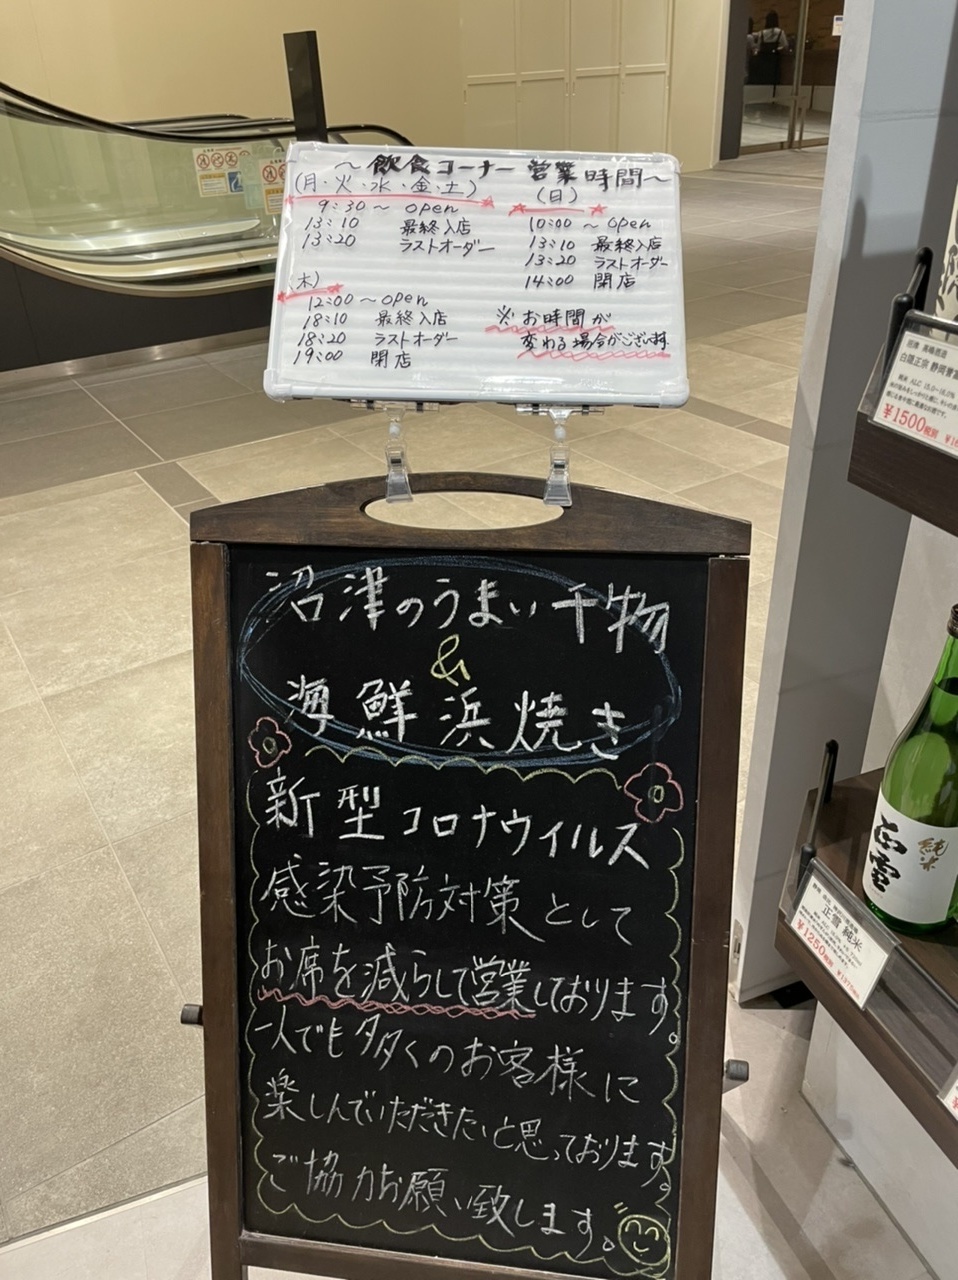 ～飲食コーナー 営業時間～
(月・火・水・金・土)
9:30～open
13:10 最終入店
13:20 ラストオーダー
(日)
10:00～open
13:10 最終入店
13:20 ラストオーダー
14:00 閉店
(木)
12:00～open
18:10 最終入店
18:20 ラストオーダー
19:00 閉店
※お時間が
変わる場合がございます
沼津のうまい干物
&
海鮮浜焼き
新型コロナウイルス
感染予防対策として
お席を減らして営業しております。
一人でも多くのお客様に
楽しんでいただきたいと思っております。
ご協力お願い致します。
¥1500税別
純米
正雪
正雪 純米
¥1250税別